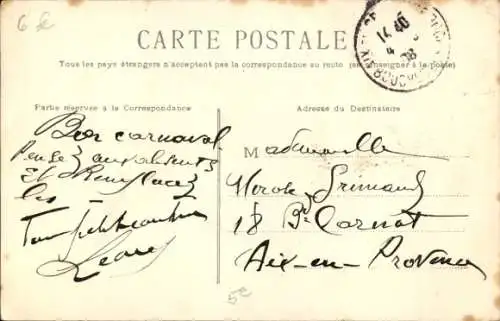 6 €
CARTE POSTALE
Tous les pays étrangers n'acceptent pas la correspondance au recto (se renseigner à la poste)
14 40
08
BOUCHES
Partie réservée à la Correspondance
Bon carnaval
Pensez aux absents
Et Remplacez
les
Ton petit
Adresse du Destinataire
Mademoiselle
Grimaud
18 Bd Carnot
Aix-en-Provence
5c